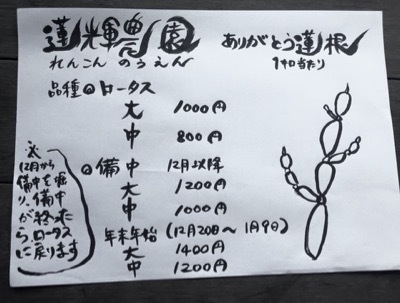 蓮根農園
れんこん のうえん
ありがとう蓮根
1キロ当たり
品種◎ロータス
大 1000円
中 800円
◎備中 12月以降
大 1200円
中 1000円
年末年始 (12月20日〜1月9日)
大 1400円
中 1200円
※
12月から
備中を堀
り、備中
が終った
ら、ロータス
に戻ります